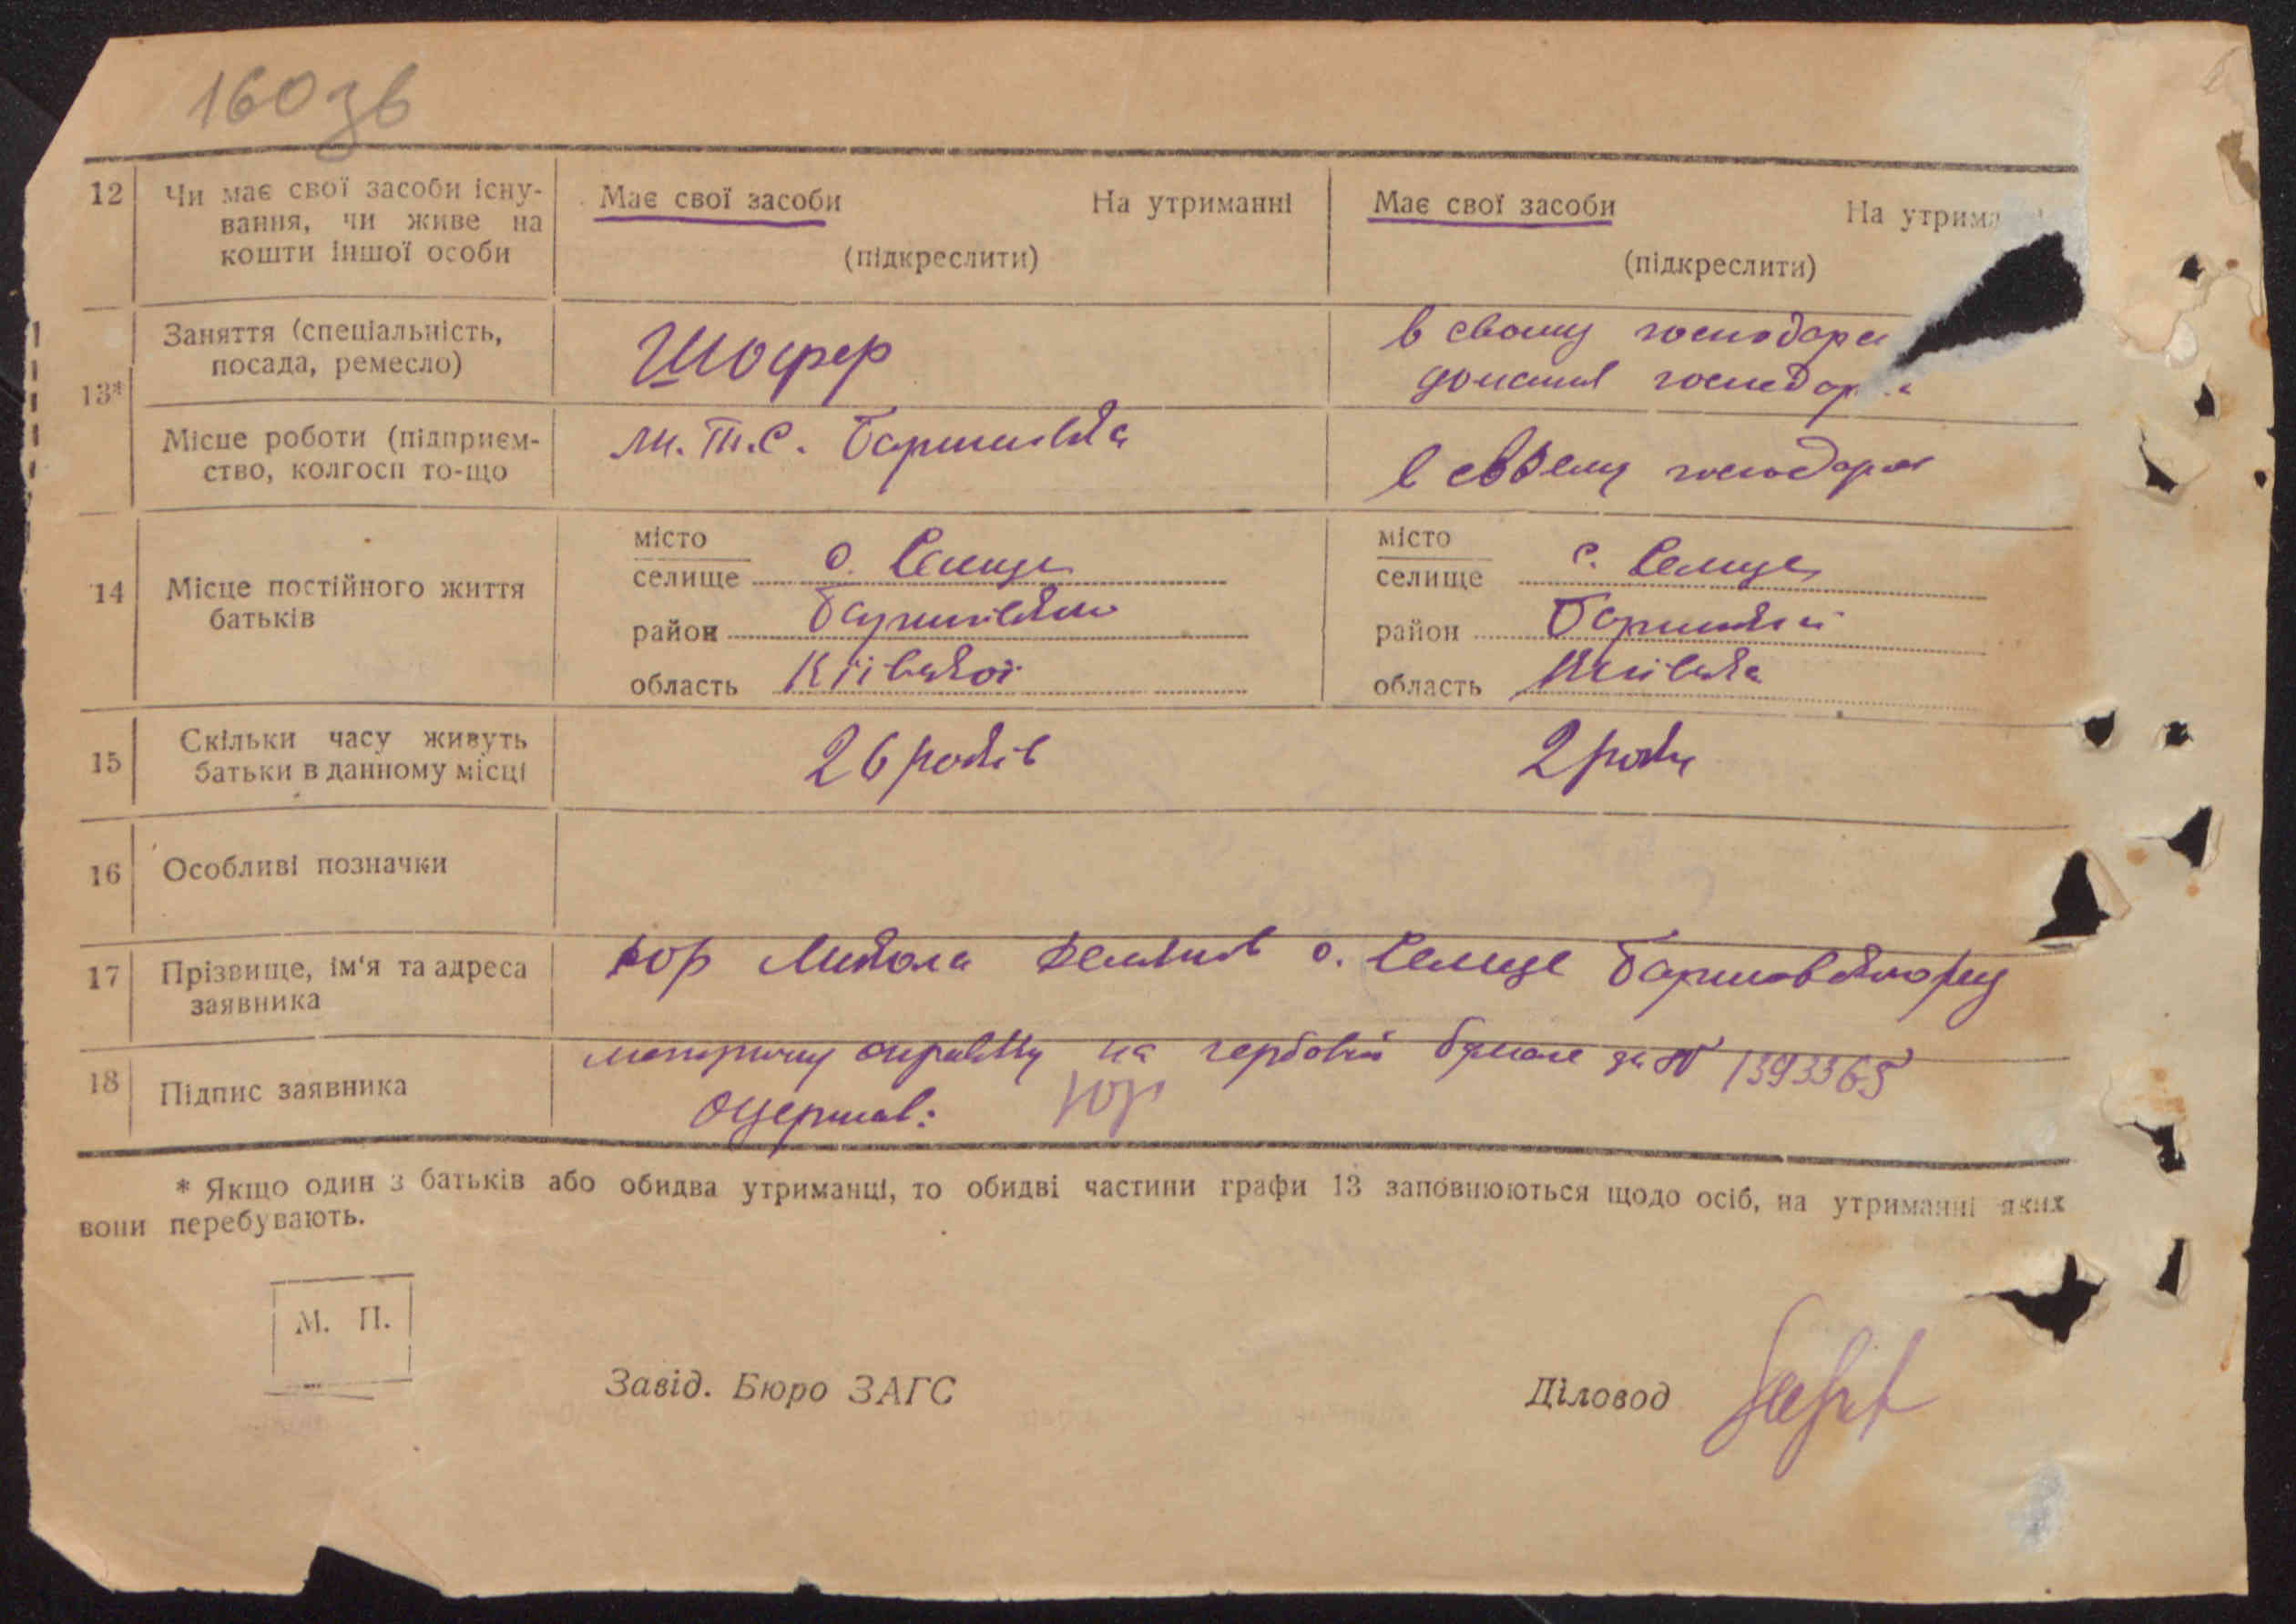 160 зв
12 Чи має свої засоби існу-
вання, чи живе на
кошти іншої особи
Має свої засоби На утриманні
(підкреслити)
Має свої засоби На утрима
(підкреслити)
13*
Заняття (спеціальність,
посада, ремесло)
Шофер
в своему господар
домашня господар
Місце роботи (підприєм-
ство, колгосп то-що
М.Т.С. Баришівка
в своему господар
14 Місце постійного життя
батьків
місто
селище с. Селище
район
область Київської
місто
селище с. Селище
район
область Київска
15 Скільки часу живуть
батьки в данному місці
26 років
2 роки
16 Особливі позначки
17 Прізвище, ім'я та адреса
заявника
Юр Микола с. Селище
18 Підпис заявника
справку на гербовій бумазі за № 1393365
одержав: Юр
* Якщо один з батьків або обидва утриманці, то обидві частини графи 13 заповнюються щодо осіб, на утриманні яких
вони перебувають.
М. П.
Завід. Бюро ЗАГС
Діловод